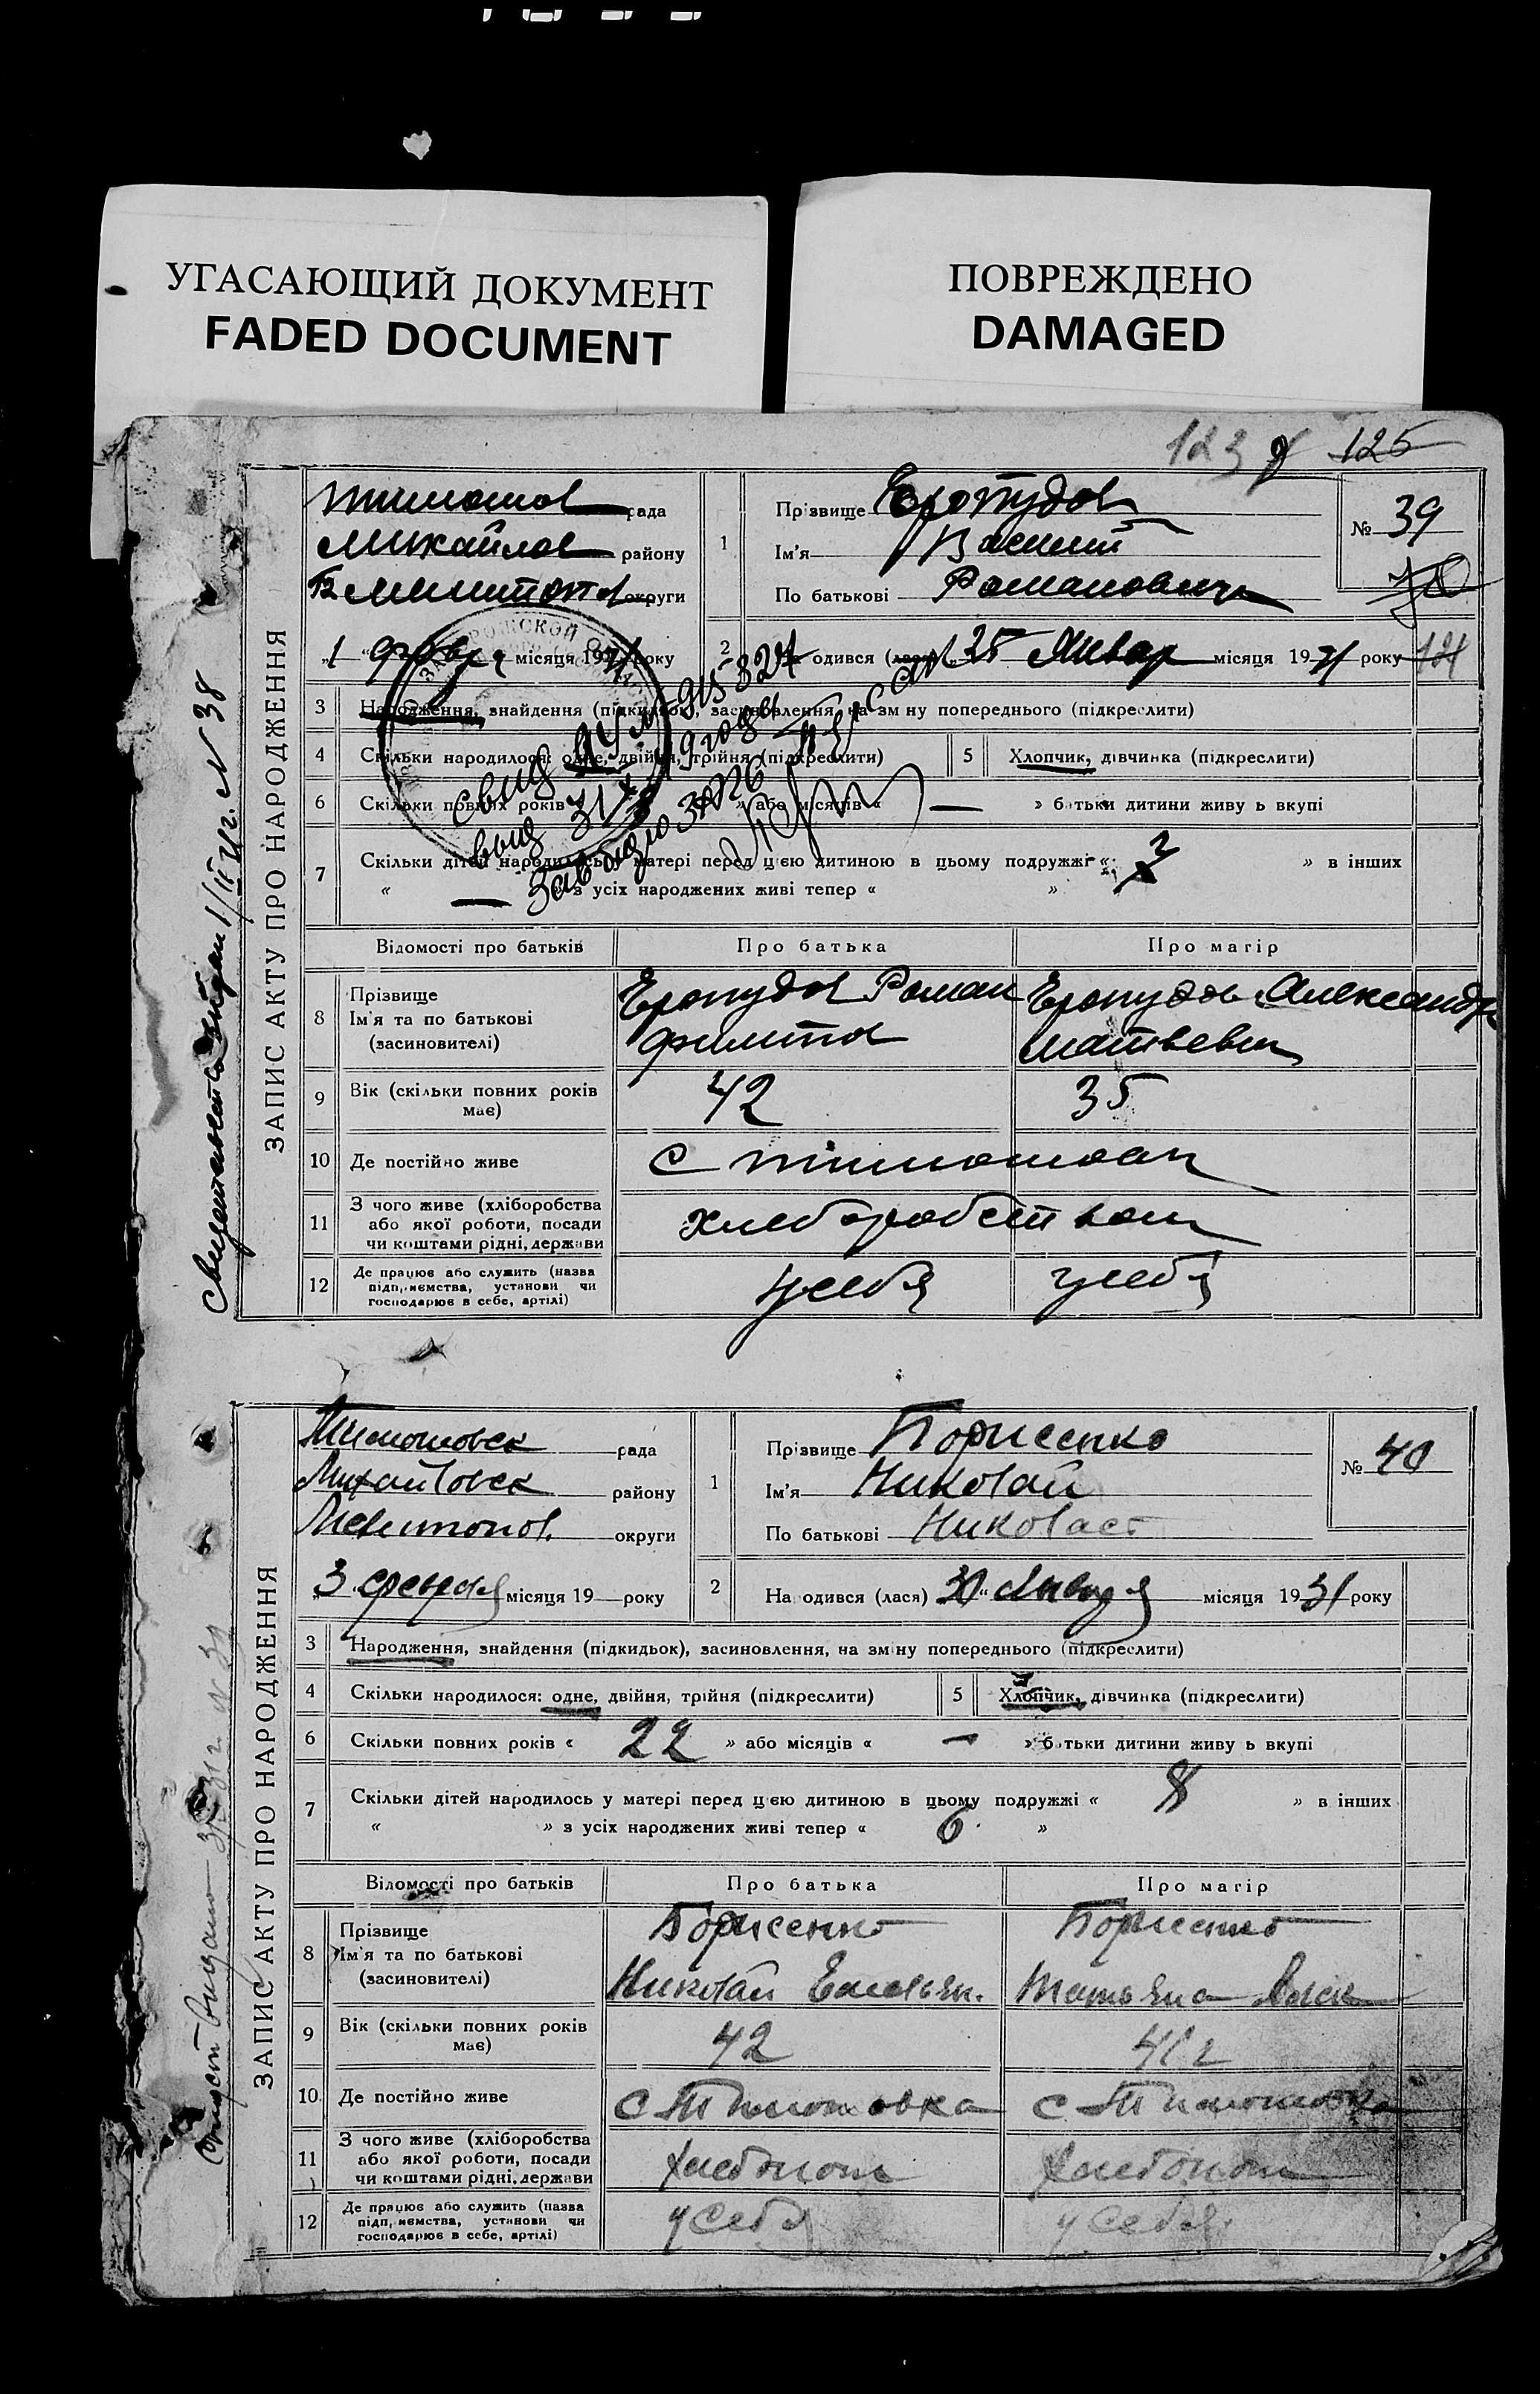 УГАСАЮЩИЙ ДОКУМЕНТ
FADED DOCUMENT
ПОВРЕЖДЕНО
DAMAGED
123 125
ЗАПИС АКТУ ПРО НАРОДЖЕННЯ
Тимошов рада
Михайлов району
Мелитопол округи
1 Прізвище Еропудов
Ім'я Василий
По батькові Романович
№ 39
70
„1 “ февр місяця 1931 року
2 На одився (лася) „25 Январ місяця 1931 року
3 Народження, знайдення (підкидьок), засиновлення, на зм ну попереднього (підкреслити)
4 Скільки народилося: одне, двійня, трійня (підкреслити)
5 Хлопчик, дівчинка (підкреслити)
6 Скільки повних років « » або місяців « — » батьки дитини живу ь вкупі
7 Скільки дітей народилось у матері перед цією дитиною в цьому подружжі « 2 » в інших
« — » з усіх народжених живі тепер « »
свид 915827
выд 31
Зав бюро ЗАГС
Свидетельство выдан 1/II 31г. N 38
Відомості про батьків Про батька Про матір
8 Прізвище
Ім'я та по батькові
(засиновителі)
Еропудов Роман
Филипов
Еропудов Александр
Матвеевн
9 Вік (скільки повних років має) 42 35
10 Де постійно живе с Тимошовк
11 З чого живе (хліборобства
або якої роботи, посади
чи коштами рідні, держави
хлеборобством
12 Де працює або служить (назва
підприємства, установи чи
господарює в себе, артілі)
у себя у себя
ЗАПИС АКТУ ПРО НАРОДЖЕННЯ
Тимошовск рада
Михайловск району
Мелитопол. округи
1 Прізвище Борисенко
Ім'я Николай
По батькові Николаев
№ 40
„3 “ февраля місяця 19 року
2 На одився (лася) 30 “ Января місяця 1931 року
3 Народження, знайдення (підкидьок), засиновлення, на зміну попереднього (підкреслити)
4 Скільки народилося: одне, двійня, трійня (підкреслити)
5 Хлопчик, дівчинка (підкреслити)
6 Скільки повних років « 22 » або місяців « — » батьки дитини живу ь вкупі
7 Скільки дітей народилось у матері перед цією дитиною в цьому подружжі « 8 » в інших
« » з усіх народжених живі тепер « 6 »
Відомості про батьків Про батька Про матір
8 Прізвище
Ім'я та по батькові
(засиновителі)
Борисенко
Николай Емельян.
Борисенко
Татьяна
9 Вік (скільки повних років має) 42 41 г
10 Де постійно живе с Тимошовка с Тимошовка
11 З чого живе (хліборобства
або якої роботи, посади
чи коштами рідні, держави
Хлебопаш Хлебопаш
12 Де працює або служить (назва
підприємства, установи чи
господарює в себе, артілі)
у себя у себя